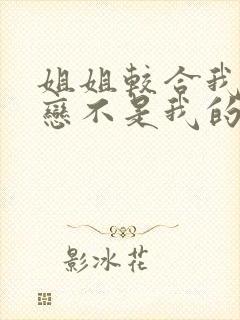 姐姐较合我
恋不是我的
影冰花